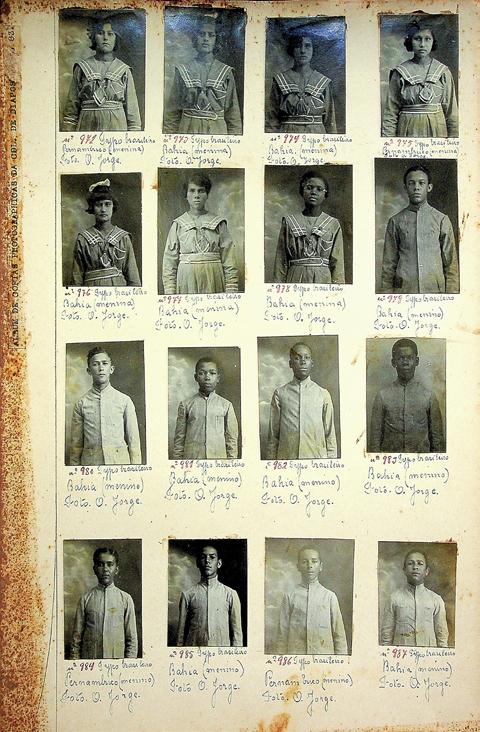 nº 972 Typo brasileiro
Pernambuco (menina)
Foto. O. Jorge.
nº 973 Typo brasileiro
Bahia (menina)
Foto. O. Jorge.
nº 974 Typo brasileiro
Bahia. (menina)
Foto. O. Jorge.
nº 975 Typo brasileiro
Pernambuco (menina)
Foto O Jorge.
nº 976 Typo brasileiro
Bahia (menina)
Foto. O. Jorge.
nº 977 Typo brasileiro
Bahia (menina)
Foto. O. Jorge.
nº 978 Typo brasileiro
Bahia (menina)
Foto. O. Jorge.
nº 979 Typo brasileiro
Bahia (menino)
Foto. O. Jorge.
nº 980 Typo brasileiro
Bahia (menino)
Foto. O. Jorge.
nº 981 Typo brasileiro
Bahia (menino)
Foto. O. Jorge.
nº 982 Typo brasileiro
Bahia (menino)
Foto. O. Jorge.
nº 983 Typo brasileiro
Bahia (menino)
Foto. O. Jorge.
nº 984 Typo brasileiro
Pernambuco (menino)
Foto. O. Jorge.
nº 985 Typo brasileiro
Bahia (menino)
Foto. O. Jorge.
nº 986 Typo brasileiro.
Pernambuco (menino)
Foto. O. Jorge.
nº 987 Typo brasileiro
Bahia (menino)
Foto. O. Jorge.